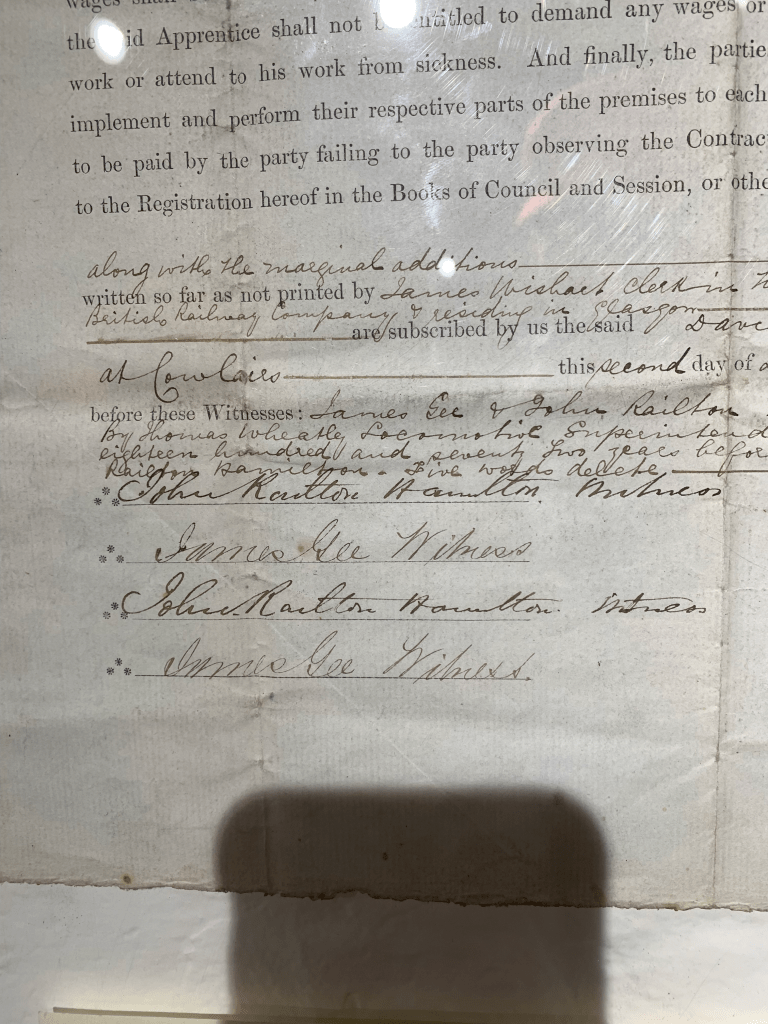 wages shall
the said Apprentice shall not be entitled to demand any wages or
work or attend to his work from sickness. And finally, the partie
implement and perform their respective parts of the premises to each
to be paid by the party failing to the party observing the Contrac
to the Registration hereof in the Books of Council and Session, or othe
along with the marginal additions
written so far as not printed by James Wishart Clerk in
British Railway Company & residing in Glasgow
are subscribed by us the said Dav
at Cowlairs this second day of
before these Witnesses: James Gee & John Railton
By Thomas Wheatly Locomotive Superintend
eighteen hundred and seventy two years befor
Railton Hamilton. Five words delete
John Railton Hamilton. Witness
James Gee Witness
John Railton Hamilton. Witness
James Gee Witness.